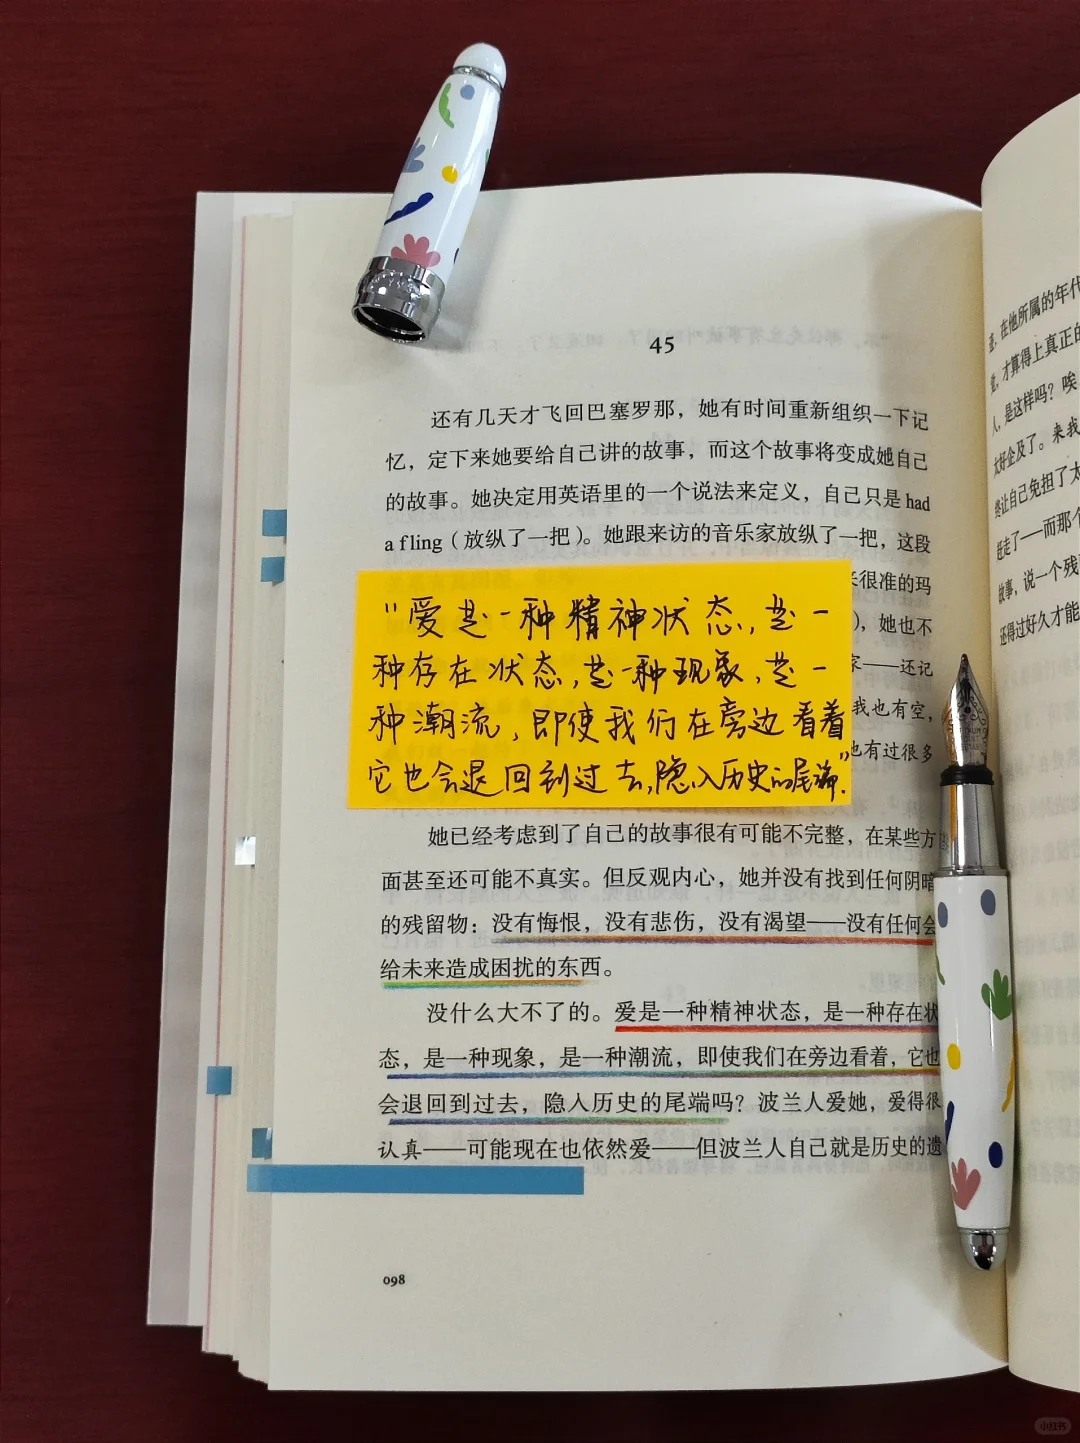 45
还有几天才飞回巴塞罗那，她有时间重新组织一下记
忆，定下来她要给自己讲的故事，而这个故事将变成她自己
的故事。她决定用英语里的一个说法来定义，自己只是 had
a fling（放纵了一把）。她跟来访的音乐家放纵了一把，这段
很准的玛
），她也不
家——还记
我也有空，
也有过很多
"爱是一种精神状态，是一
种存在状态，是一种现象，是一
种潮流，即使我们在旁边看着
它也会退回到过去，隐入历史的尾端"
她已经考虑到了自己的故事很有可能不完整，在某些方
面甚至还可能不真实。但反观内心，她并没有找到任何阴暗
的残留物：没有悔恨，没有悲伤，没有渴望——没有任何会
给未来造成困扰的东西。
没什么大不了的。爱是一种精神状态，是一种存在状
态，是一种现象，是一种潮流，即使我们在旁边看着，它也
会退回到过去，隐入历史的尾端吗？波兰人爱她，爱得很
认真——可能现在也依然爱——但波兰人自己就是历史的遗
098
道，在他所属的年代
觉，才算得上真正的
人，是这样吗？唉
太好企及了。来我
终让自己免担了太
赶走了——而那个
故事，说一个残
还得过好久才能
小红书